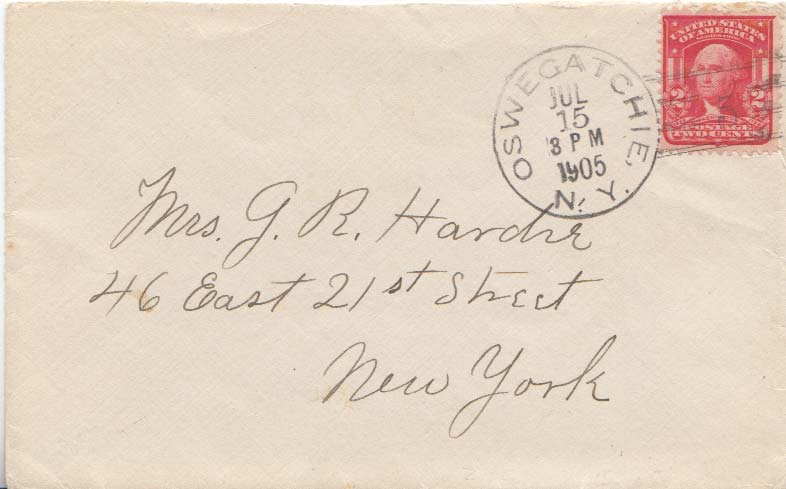 OSWEGATCHIE,
JUL
15
3 PM
1905
N. Y.
UNITED STATES
OF AMERICA
2 2
POSTAGE
TWO CENTS
Mrs. G. R. Hardie
46 East 21st Street
New York